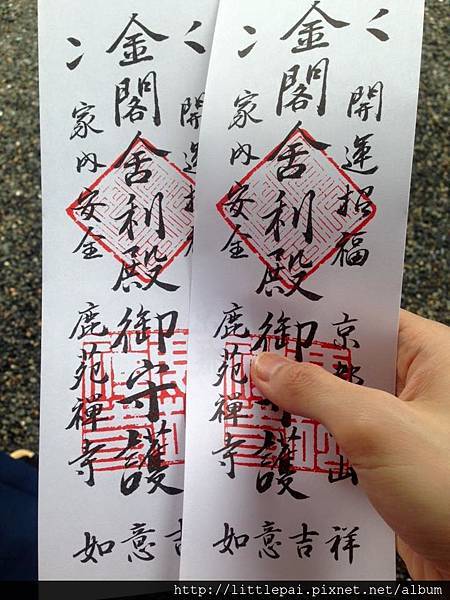 開運招福
京都 山
金閣舎利殿御 護
家内安全
鹿苑禅寺
如意吉祥
開運招
金閣舎利殿御守護
家内安全
鹿苑禅寺
如意吉
http://littlepai.pixnet.net/album